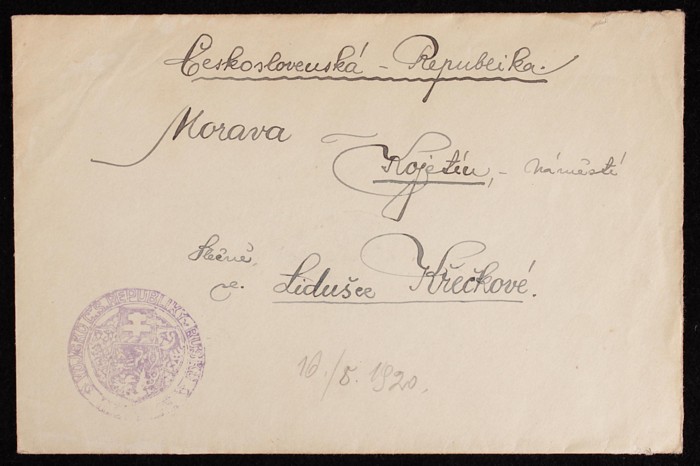 Československá – Republika.
Morava
Kojetín, – náměstí
Slečně.
Lidušce Křečkové.
16./5. 1920.